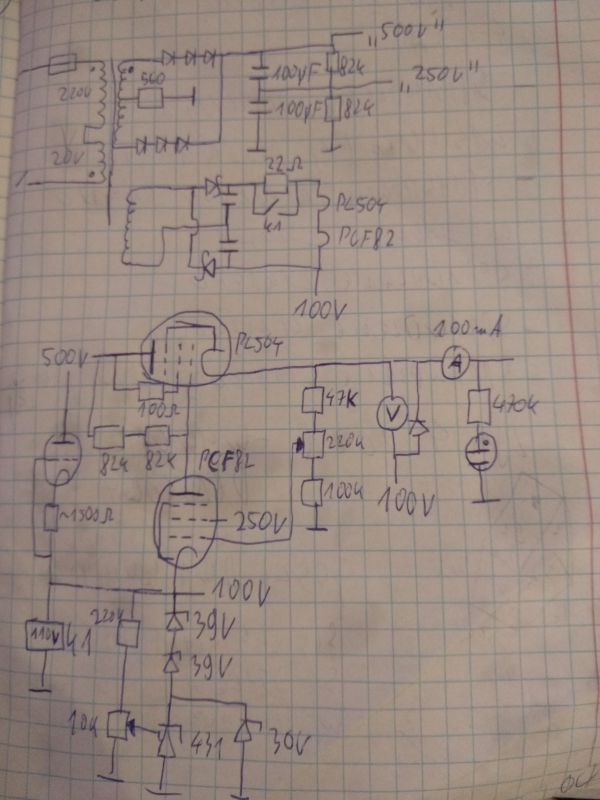 „500V"
560
220V
100µF
82k
„250V"
20V
100µF
82k
22Ω
k1
PL504
PCF82
100V
100mA
500V
PL504
A
100Ω
47K
V
470k
82k
82k
PCF82
220k
~1500Ω
250V
100k
100V
100V
110V
k1
220k
39V
39V
10k
431
30V